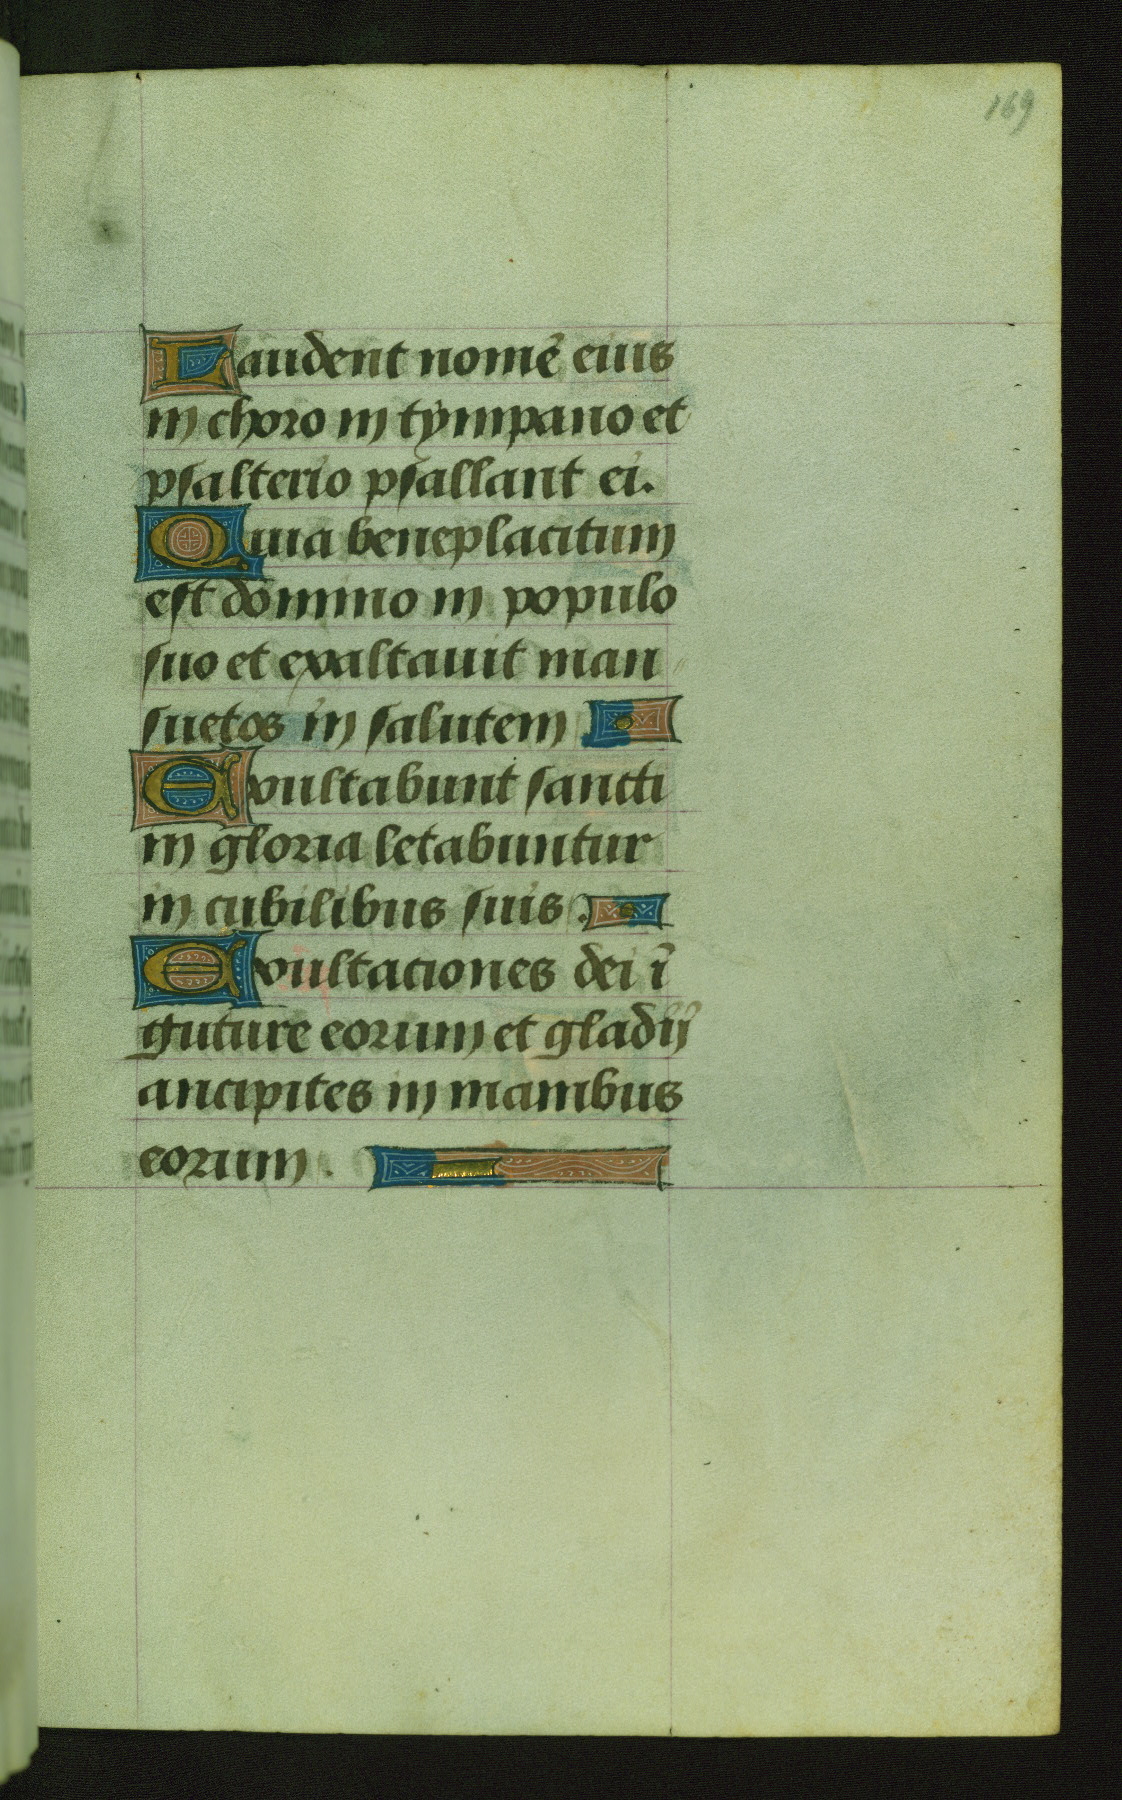 169
Laudent nomē eius
in choro in tympano et
psalterio psallant ei.
Quia beneplacitum
est domino in populo
suo et exaltauit man
suetos in salutem
Exultabunt sancti
in gloria letabuntur
in cubilibus suis.
Exultaciones dei ī
guture eorum et gladij
ancipites in manibus
eorum.